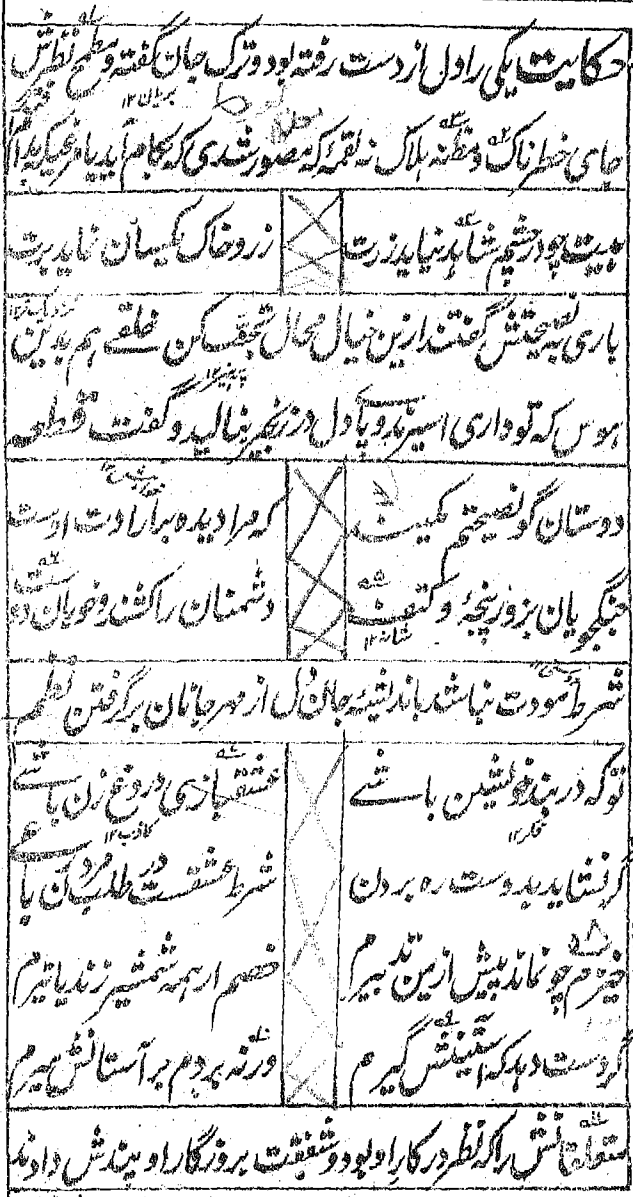 حکایت یکی را دل از دست رفته بود و ترک جان گفته و مطمح نظرش
جای خطرناک و مظنه هلاک نه لقمهٔ که مصور شدی که بکام آید یا مرغیکه بدام
بیت چو در چشم شاهد نیاید زرت
زر و خاک یکسان نماید برت
باری نصیحتش گفتند ازین خیال محال تجنب کن خلقے هم بدین
هوس که تو داری اسیر ند و پاے دل در زنجیر بنالید و گفت قطعه
دوستان گو نصیحتم مکنید
که مرا دیده بر ارادت اوست
جنگجویان بزور پنجهٔ و کتف
دشمنان را کشند و خوبان
شرط مودت نباشد باندیشهٔ جان دل از مهر جانان برگرفتن نظم
تو که در بند خویشتن باشے
عشقبازی دروغ زن باشے
گر نشاید بدوست ره بردن
شرط عشقست در طلب مردن
خیزم چو نماند بیش ازین تدبیرم
خصم ار همه شمشیر زند یا تیرم
گر دست دهد که آستینش گیرم
ورنه بروم بر آستانش میرم
متعلقانش را که نظر در کار او بود و شفقت بروزگار او پندش دادند